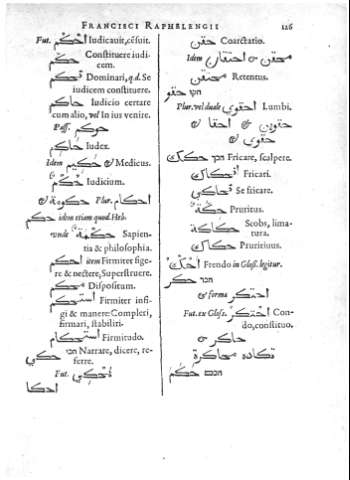 FRANCISCI RAPHELENGII 126
Fut. احكم Iudicauit, cẽsuit.
حكم Constituere iudi-
cem.
Dominari, q.d. Se
iudicem constituere.
حاكم Iudicio certare
cum alio, vel In ius venire.
Pass. حوكم
حاكم Iudex.
Idem حكيم & Medicus.
حكم Iudicium.
Plur. احكام & حكومة
حكم idem etiam quod Heb.
unde حكمة Sapien-
tia & philosophia.
احكم item Firmiter fige-
re & nectere, Superstruere.
محكم Dispositum.
استحكم Firmiter infi-
gi & manere: Compleri,
firmari, stabiliri.
استحكام Firmitudo.
حكي Narrare, dicere, re-
ferre.
Fut.
احكا
حقن Coarctatio.
Idem احتقان & محتقن
محتقن Retentus.
حقو
Plur. vel duale احقوي Lumbi.
حقوين & احقا &
حقوي &
حكك Fricare, scalpere.
Fricari.
Se fricare.
حكة Pruritus.
حكاكة Scobs, lima-
tura.
حكاك Pruritiuus.
Frendo in Gloss. legitur.
حكر
& forma احتكر
Fut. ex Gloss. احتكر Con-
do, constituo.
حاكر &
محاكرة